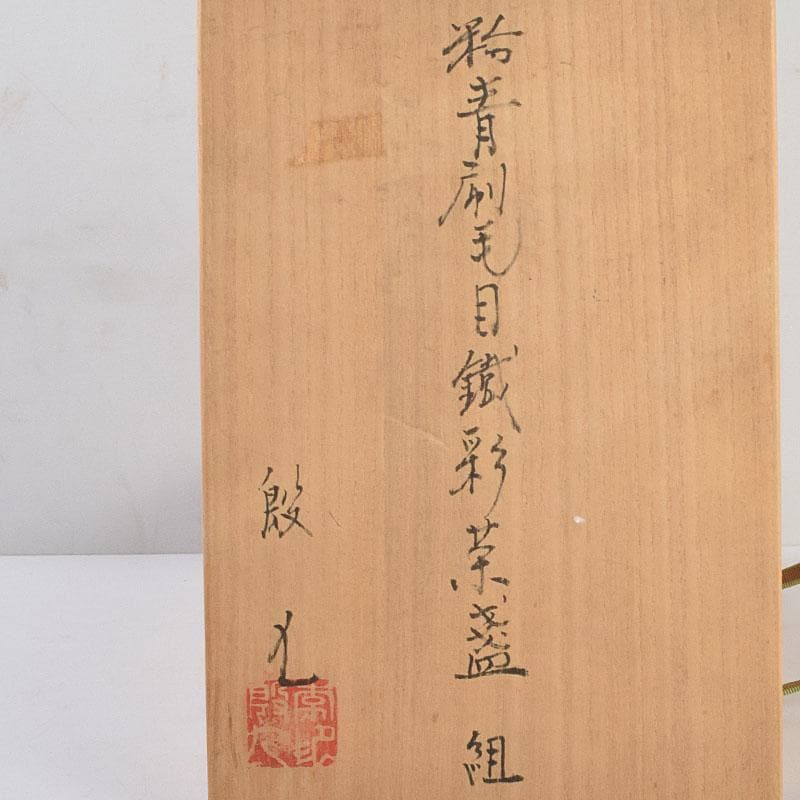 粉青刷毛目鐵彩茶盞 組
殷